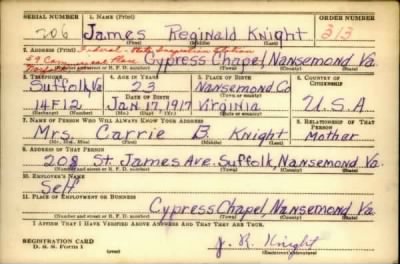 SERIAL NUMBER 1. NAME (Print) ORDER NUMBER
206 James Reginald Knight 313
(First) (Middle) (Last)
2. ADDRESS (Print) Federal - State Inspection Station
59 Commercial Place Cypress Chapel, Nansemond Va.
Norfolk
(Number and street or R. F. D. number) (Town) (County) (State)
3. TELEPHONE 4. AGE IN YEARS 5. PLACE OF BIRTH 6. COUNTRY OF CITIZENSHIP
Suffolk Va 23 Nansemond Co
DATE OF BIRTH (Town or county)
14F12 Jan. 17, 1917 Virginia U.S.A
(Exchange) (Number) (Mo.) (Day) (Yr.) (State or country)
7. NAME OF PERSON WHO WILL ALWAYS KNOW YOUR ADDRESS 8. RELATIONSHIP OF THAT PERSON
Mrs. Carrie B. Knight Mother
(Mr., Mrs., Miss) (First) (Middle) (Last)
9. ADDRESS OF THAT PERSON
208 St. James Ave. Suffolk, Nansemond Va.
(Number and street or R. F. D. number) (Town) (County) (State)
10. EMPLOYER'S NAME
Self
11. PLACE OF EMPLOYMENT OR BUSINESS
Cypress Chapel, Nansemond Va.
(Number and street or R. F. D. number) (Town) (County) (State)
I AFFIRM THAT I HAVE VERIFIED ABOVE ANSWERS AND THAT THEY ARE TRUE.
REGISTRATION CARD
D. S. S. FORM 1 J. R. Knight
(Registrant's signature)